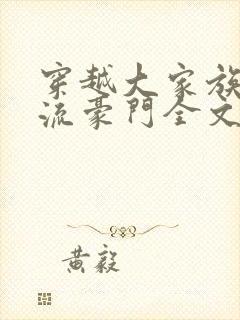 穿越大家族
流豪門全文
黃毅